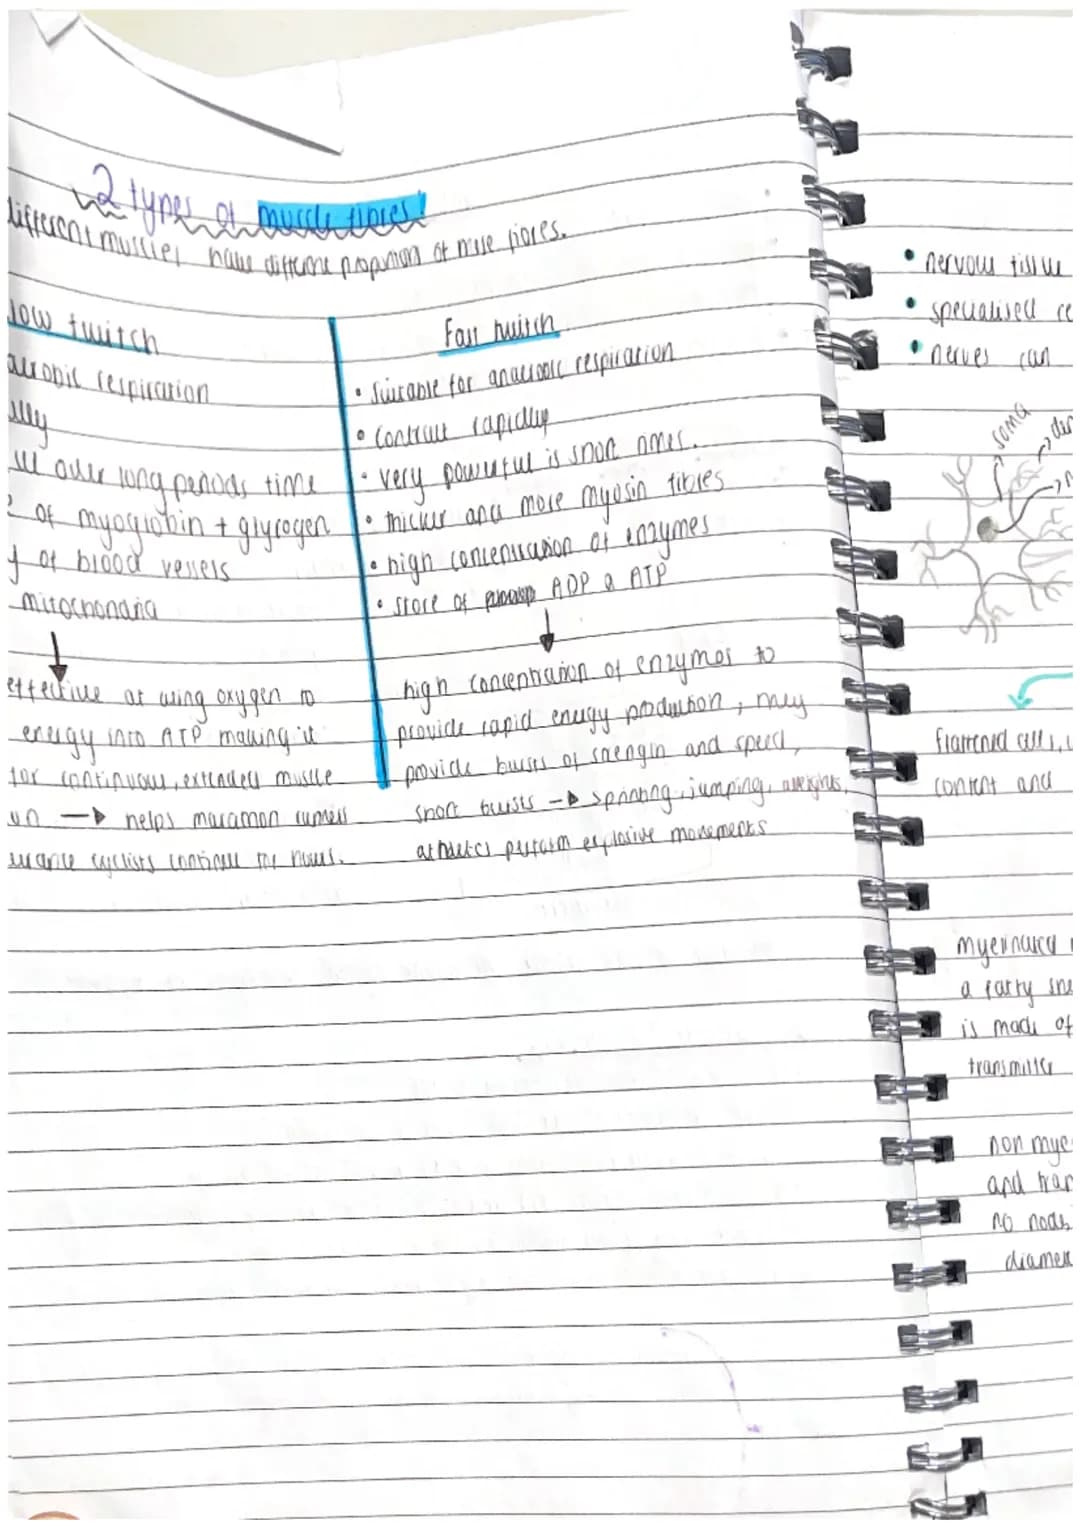 2 types of muscle fibres!
different muscles have different proportions of these fibres.
low twitch
aerobic respiration
lly
ll over long periods time
of myoglobin + glycogen
y of blood vessels
mitochondria
effective at using oxygen to
energy into ATP making it
for continuous, extended muscle
un → helps marathon runners
urance cyclists continue for hours.
Fast twitch
• Suitable for anaerobic respiration
• Contract rapidly
• very powerful is short times.
• thicker and more myosin fibres
• high concentration of enzymes
• store of ADP & ATP
high concentration of enzymes to
provide rapid energy production, they
provide bursts of strength and speed,
short bursts → sprinting, jumping, weights,
athletics perform explosive movements
• nervous tissue
• specialised ce
• nerves can
soma
den
flattened cells,
content and
myelinated
a fatty she
is made of
transmitte
non mye
and tran
no nodes
diamet